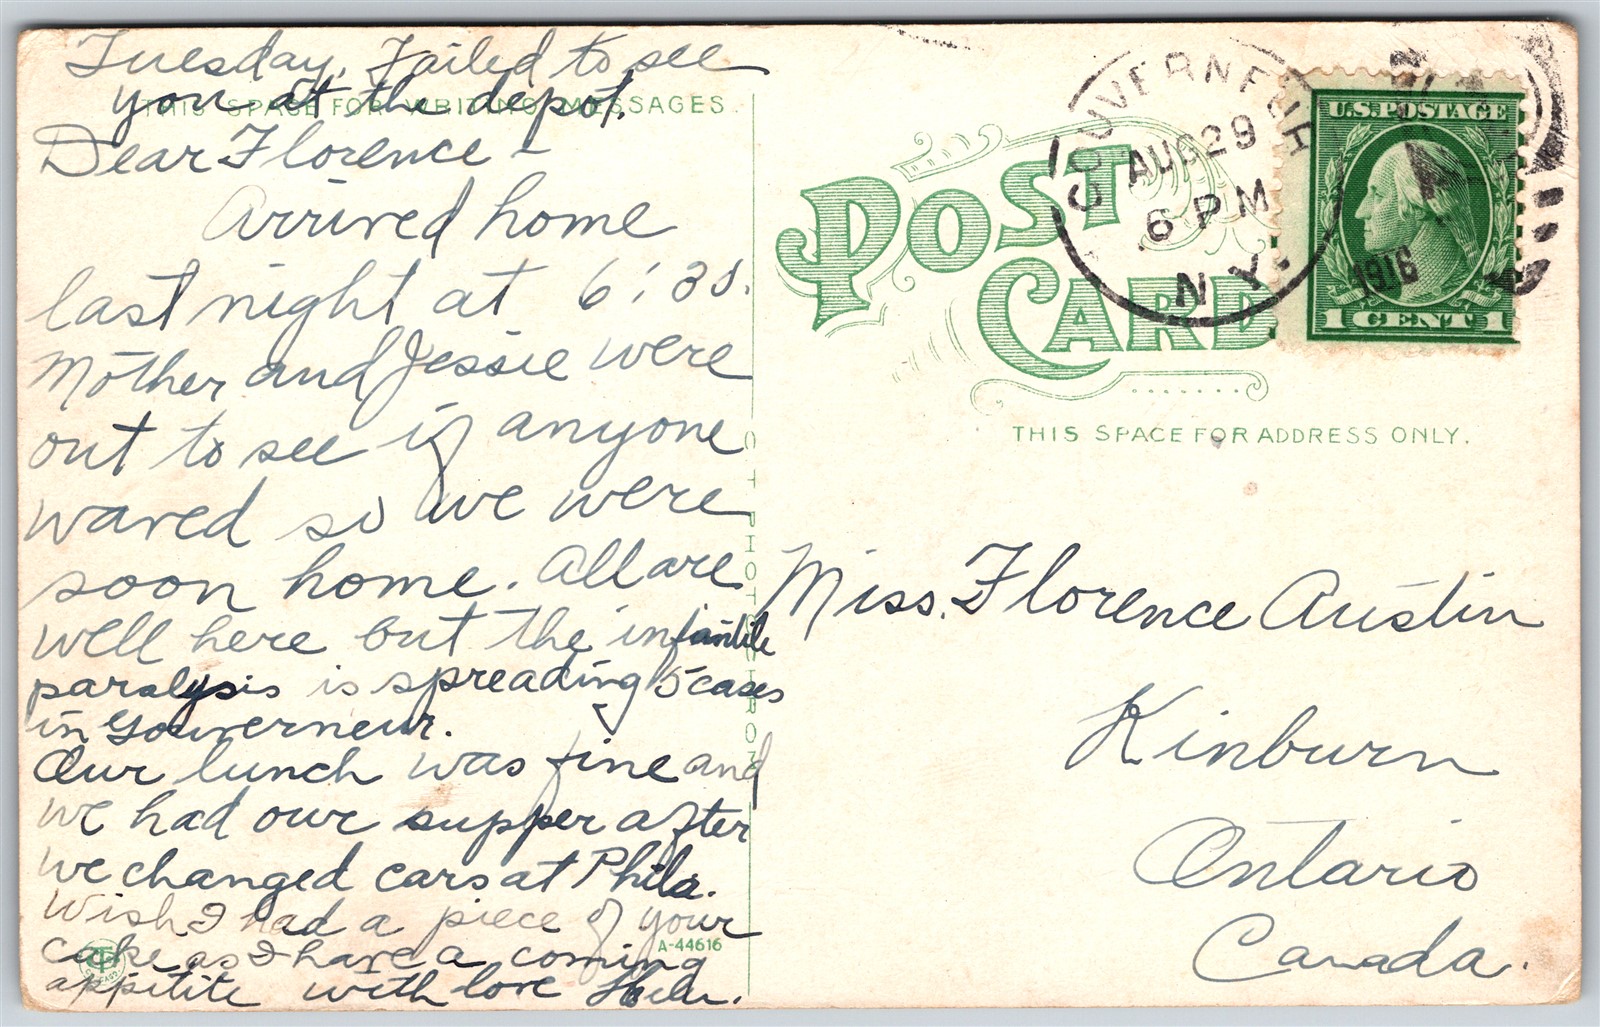 Tuesday. Failed to see
you at the depot.
THIS SPACE FOR WRITING MESSAGES
Dear Florence -
Arrived home
last night at 6:30.
Mother and Jessie were
out to see if anyone
waved so we were
soon home. All are
well here but the infantile
paralysis is spreading 5 cases
in Gouverneur.
Our lunch was fine and
we had our supper after
we changed cars at Phila.
Wish I had a piece of your
cake as I have a coming
appitite with love
A-44616
C T PHOTOCHROM
POST
CARD
GOUVERNEUR
AUG 29
6 PM
N.Y.
1916
U.S. POSTAGE
1 CENT 1
THIS SPACE FOR ADDRESS ONLY.
Miss. Florence Austin
Kinburn
Ontario
Canada.